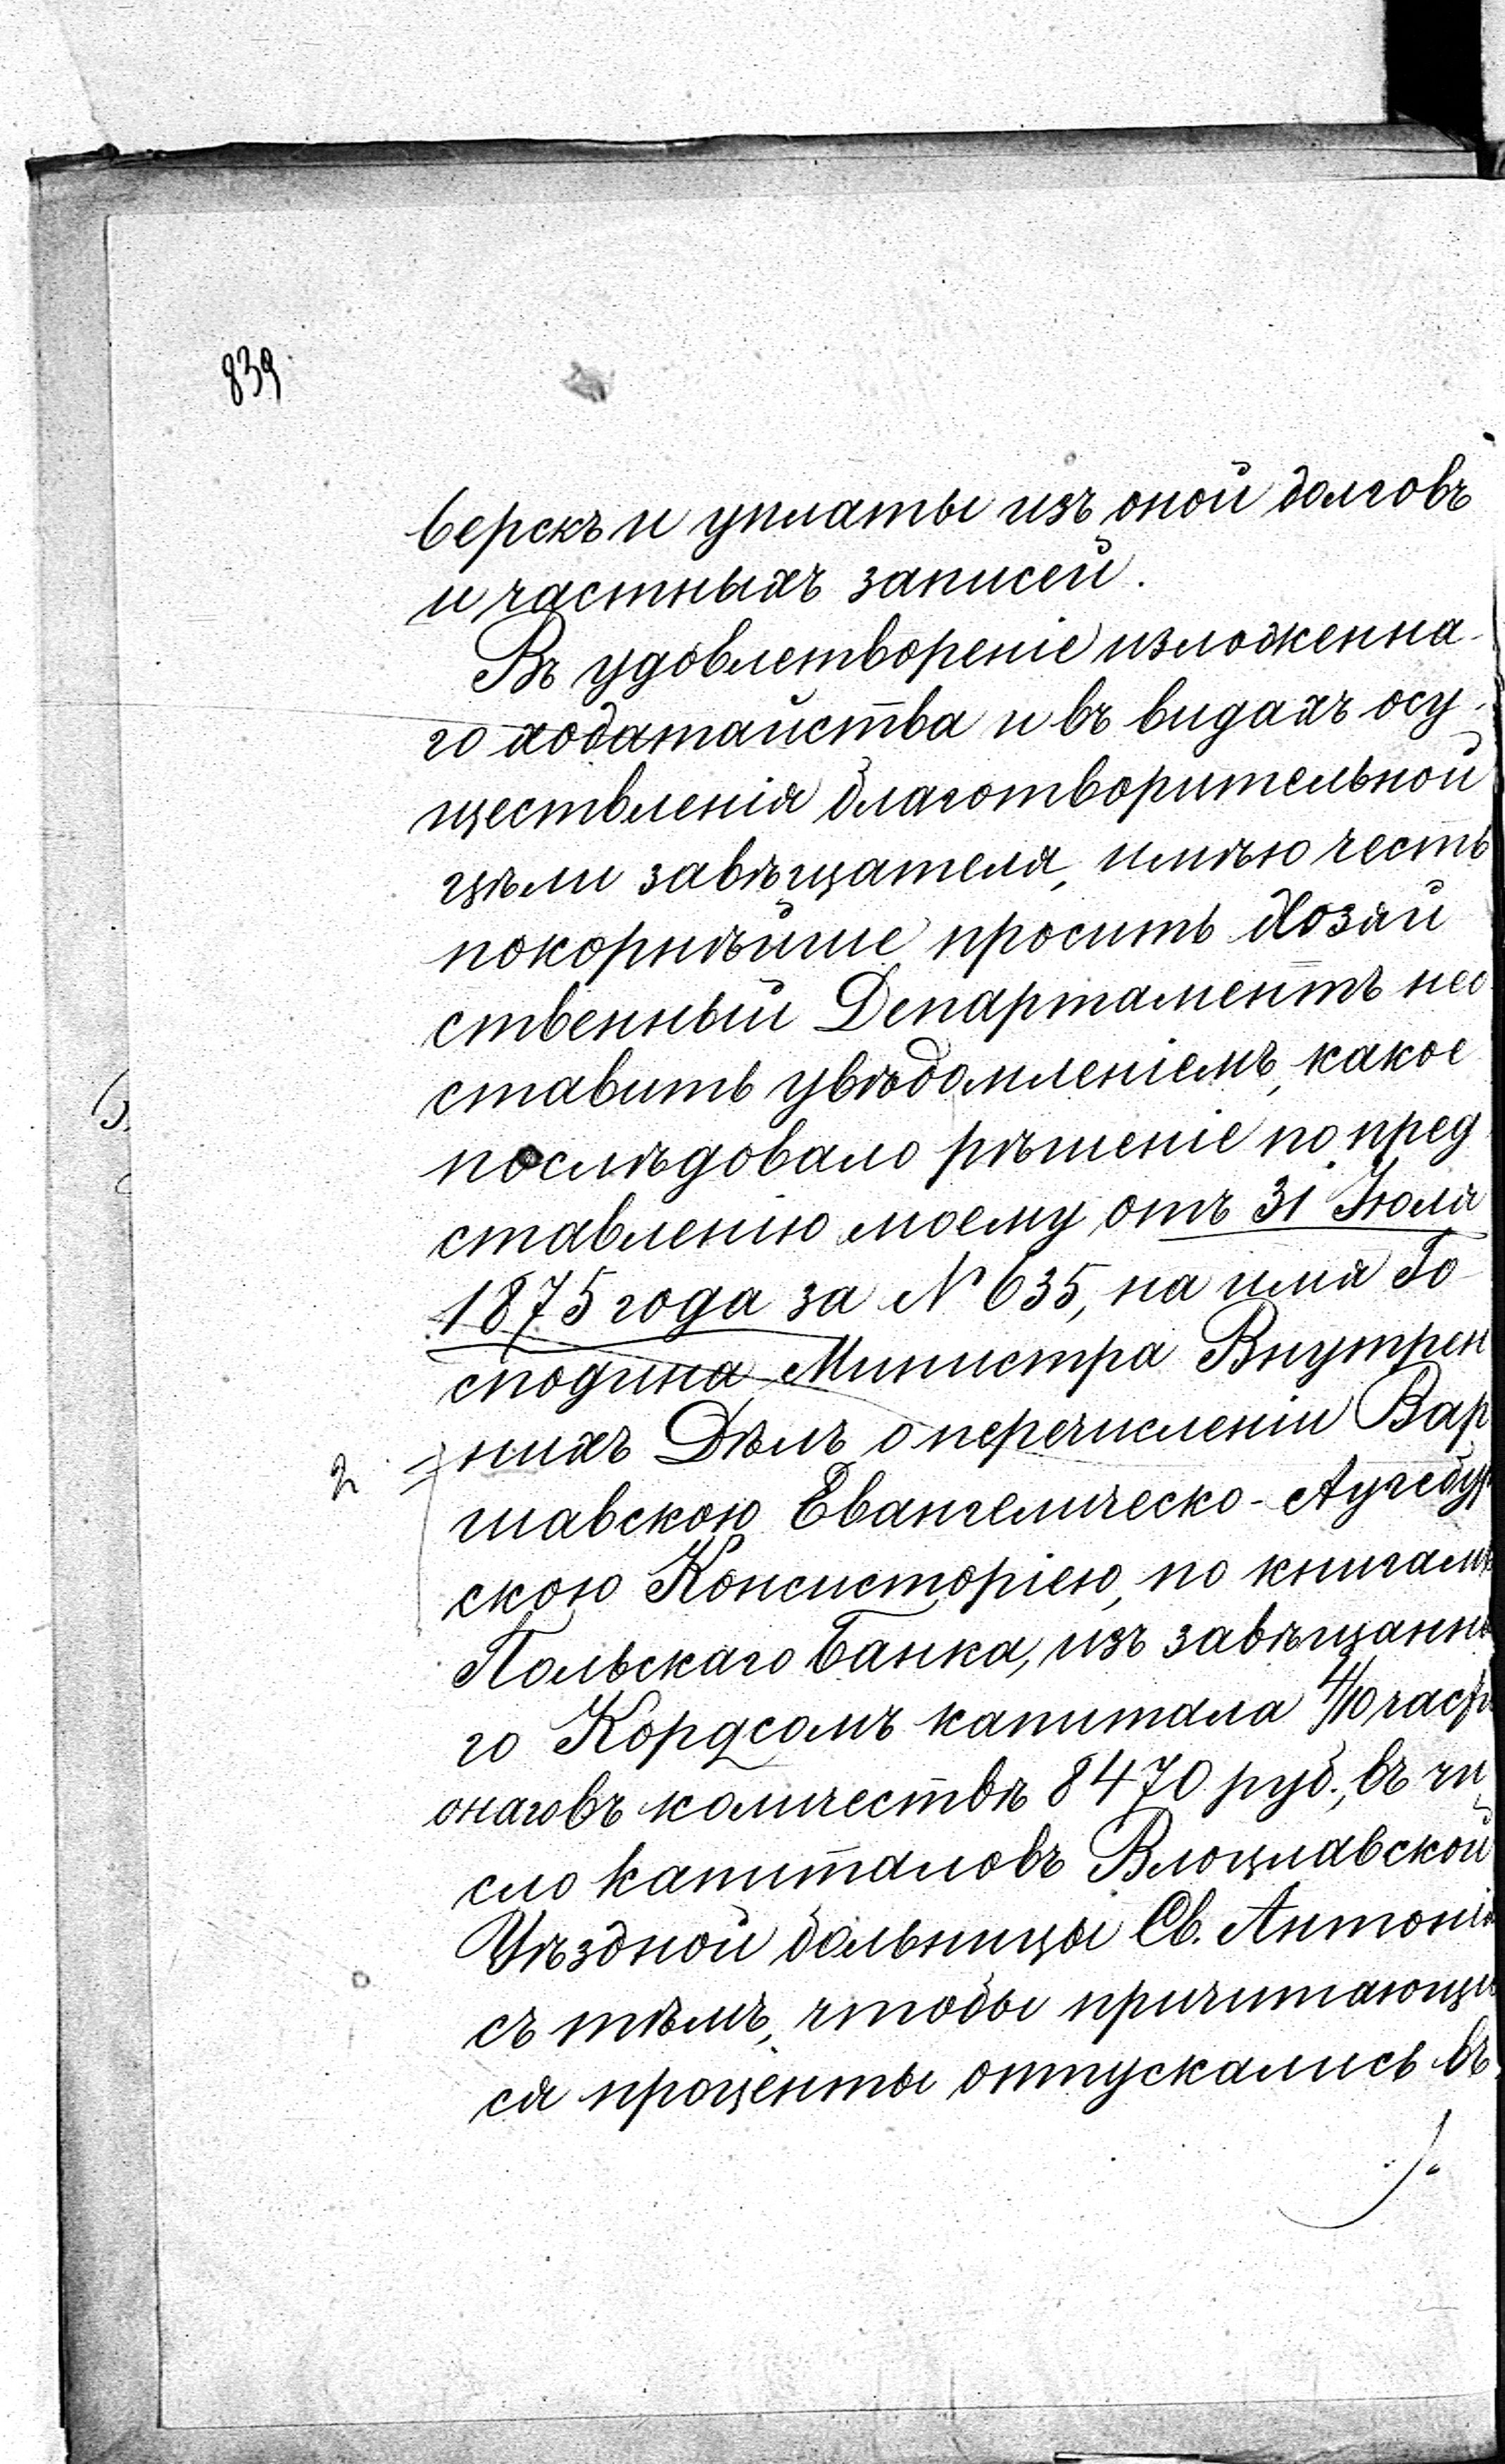 839
верскъ и уплаты изъ оной долговъ
и частныхъ записей.
Въ удовлетвореніе изложенна-
го ходатайства и въ видахъ осу-
ществленія благотворительной
цѣли завѣщателя, имѣю честь
покорнѣйше просить Хозяй
ственный Департаментъ нео
ставить увѣдомленіемъ, какое
послѣдовало рѣшеніе по пред
ставленію моему отъ 31 Іюля
1875 года за № 635, на имя Го-
сподина Министра Внутрен
нихъ Дѣлъ о перечисленіи Вар
2
шавскою Евангелическо-Аугсбур
скою Консисторіею, по книгамъ
Польскаго Банка, изъ завѣщанна
го Кордсомъ капитала 4/10 части
онаго въ количествѣ 8470 руб., въ чи
сло капиталовъ Влоцлавской
Уѣздной больницы Св. Антонія
съ тѣмъ, чтобы причитающи
ся проценты отпускались въ